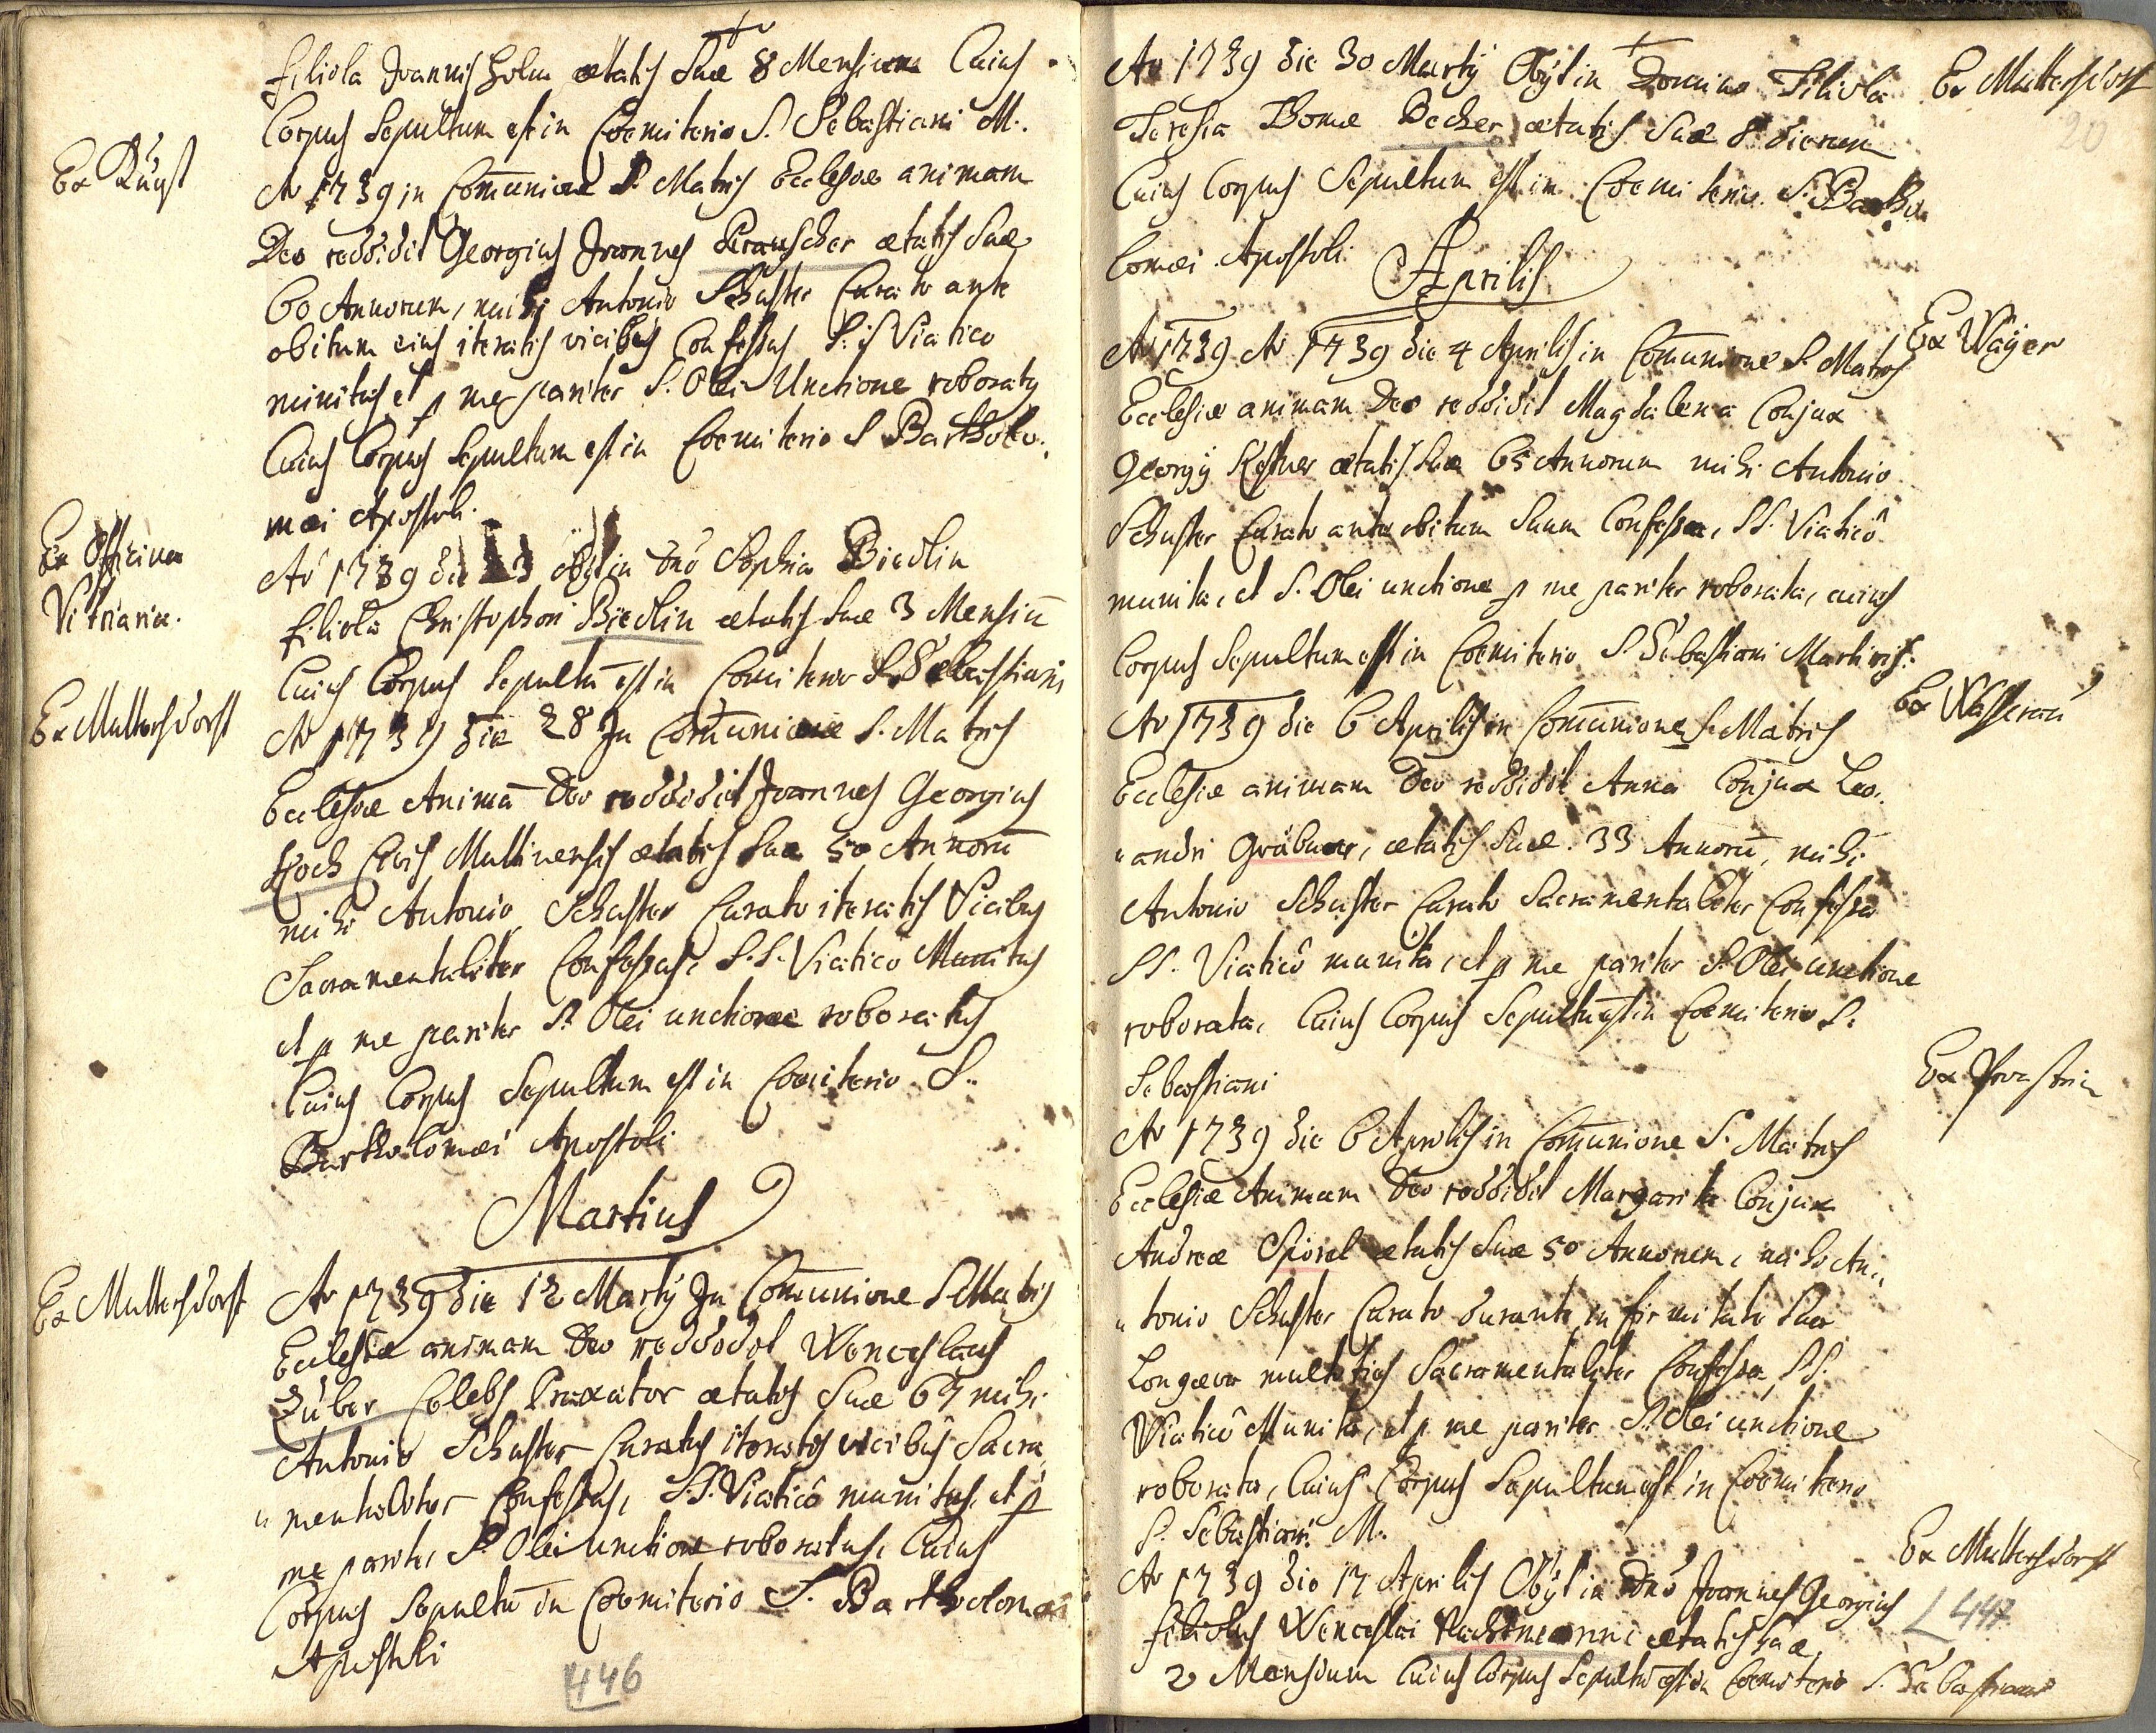 filiola Joannis Holm ætatis Suæ 8 Mensium Cuius
Corpus Sepultum est in Coemiterio S. Sebastiani M.
Ex
Ao 1739 in Com̄unione S. Matris Ecclesiæ animam
Deo reddidit Georgius Joannes Prauscher ætatis Suæ
60 Annorum, mihi Antonio Schuster Curato ante
obitum eius iteratis vicibus Confessus S.S. Viatico
munitus et p me pariter S. Olei Unctione roboratus
Cuius Corpus Sepultum est in Coemiterio S Bartholo:
mæi Apostoli.
Ex Officina
Vitriaria.
Ao 1739 die obÿt in Dno Sophia Biedlin
filiola Christophori Biedlin ætatis Suæ 3 Mensiū
Cuius Corpus Sepultū est in Coemiterio S. Sebastiani
Ex Muttersdorff
Ao 1739 die 28 In Com̄unione S. Matris
Ecclesiæ Animā Deo reddidit Joannes Georgius
Hoch Civis Muttinensis ætatis Suæ 50 Annorū
mihi Antonio Schuster Curato iteratis Vicibus
Sacramentaliter Confessus, S.S. Viatico Munitus
et p me pariter S. Olei unctione roboratus
Cuius Corpus Sepultum est in Coemiterio S.
Bartholomæi Apostoli
Martius
Ex Muttersdorff
Ao 1739 die 12 Martÿ In Com̄unione S Matris
Ecclesiæ animam Deo reddidit Wenceslaus
Züber Cælebs Braxator ætatis Suæ 67 mihi
Antonio Schuster Curatus iteratis vicibus Sacra
"mentaliter Confessus, S.S. Viaticô munitus, et p
me pariter S. Olei Unctione roboratus, Cuius
Corpus Sepultū in Coemiterio S. Bartholomæi
Apostoli
446
Ao 1739 die 30 Martÿ Obÿt in Domino Filiola
Ex Muttersdorff
20
Teresia Thomæ Becher ætatis Suæ 8 dierum
Cuius Corpus Sepultum est in Coemiterio S. Bartho
lomæi Apostoli
Aprilis
Ex Waÿer
Ao 1739 Ao 1739 die 4 Aprilis in Com̄unione S. Matris
Ecclesiæ animam Deo reddidit Magdalena Conjux
Georgÿ Kestner ætatis Suæ 65 Annorum mihi Antonio
Schuster Curato ante obitum Suum Confessa, SS. Viaticô
munita, et S. Olei unctione p me pariter roborata, cuius
Corpus Sepultum est in Coemiterio S Sebastiani Martiris.
Ex Wasserau
Ao 1739 die 6 Aprilis in Com̄unione S. Matris
Ecclesiæ animam Deo reddidit Anna Conjux Leo.
"andri Gräbner, ætatis Suæ 33 Annorū, mihi
Antonio Schuster Curato Sacramentaliter Confessa
SS. Viaticô munita, et p me pariter S. Olei unctione
roborata, Cuius Corpus Sepultū est in Coemiterio S.
Sebastiani
Ex
Ao 1739 die 6 Aprilis in Com̄unione S. Matris
Ecclesiæ Animam Deo reddidit Margarita Conjux
Andreæ Spörel ætatis Suæ 50 Annorum, mihi An,,
"tonio Schuster Curato durante infirmitate Sua
Longæva multoties Sacramentaliter Confessa, SS.
Viaticô Munita, et p me pariter S. Olei unctione
roborata, Cuius Corpus Sepultum est in Coemiterio
S. Sebastiani M.
Ex Muttersdorff
Ao 1739 die 17 Aprilis Obÿt in Dno Joannes Georgius
447
filiolus Wenceslai ætatis Suæ
2 Mensium Cuius Corpus Sepultū est in Coemiterio S. Sebastiani